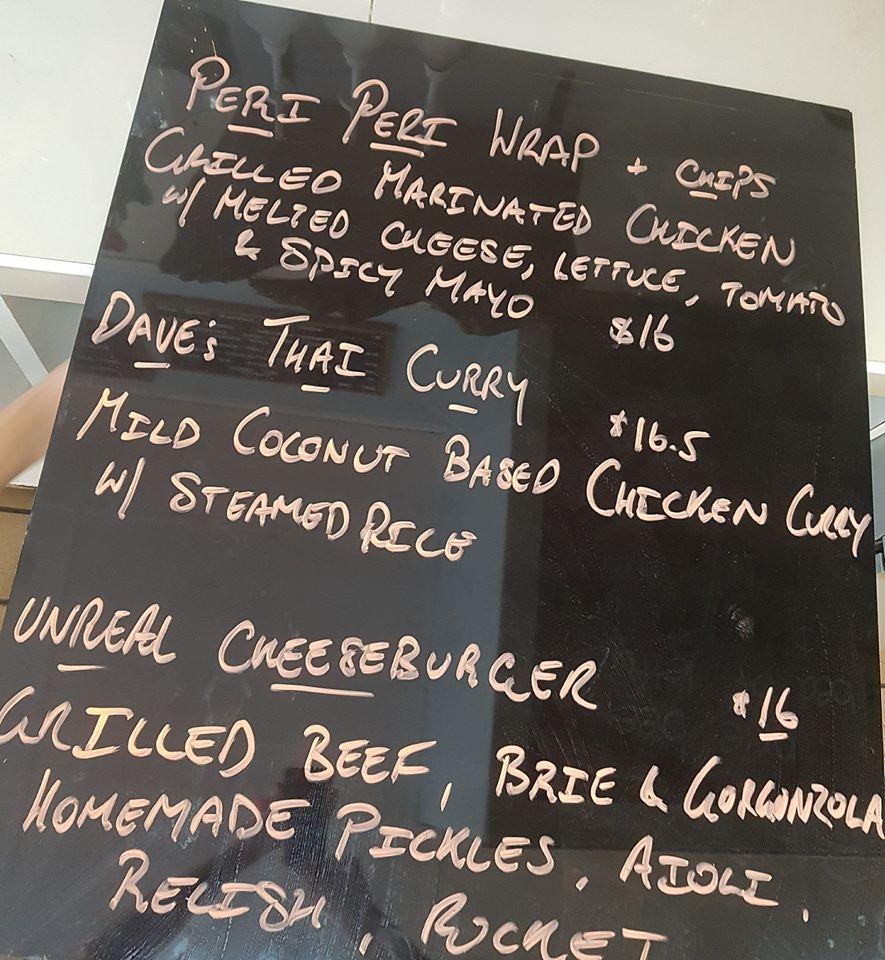 PERI PERI WRAP + CHIPS
GRILLED MARINATED CHICKEN
W/ MELTED CHEESE, LETTUCE, TOMATO
& SPICY MAYO $16
DAVE'S THAI CURRY $16.5
MILD COCONUT BASED CHICKEN CURRY
W/ STEAMED RICE
UNREAL CHEESEBURGER $16
GRILLED BEEF, BRIE & GORGONZOLA
HOMEMADE PICKLES, AIOLI,
RELISH, ROCKET